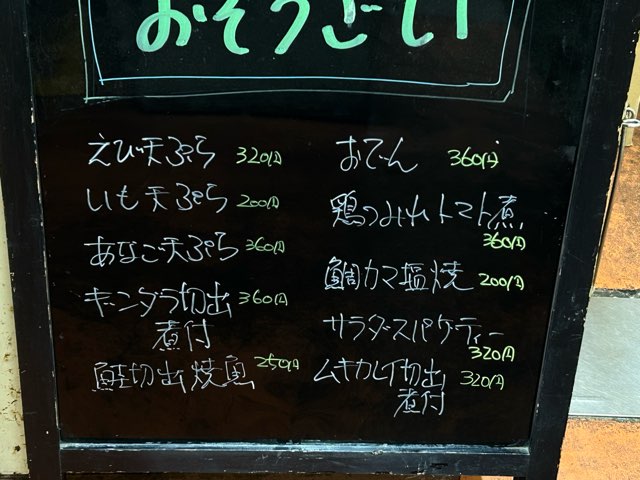 おそうざい
えび天ぷら 320円
いも天ぷら 200円
あなご天ぷら 360円
ギンダラ切出 360円
煮付
鮭切出焼魚 250円
おでん 360円
鶏つみれトマト煮
360円
鯛カマ塩焼 200円
サラダスパゲティー
320円
ムキカレイ切出 320円
煮付